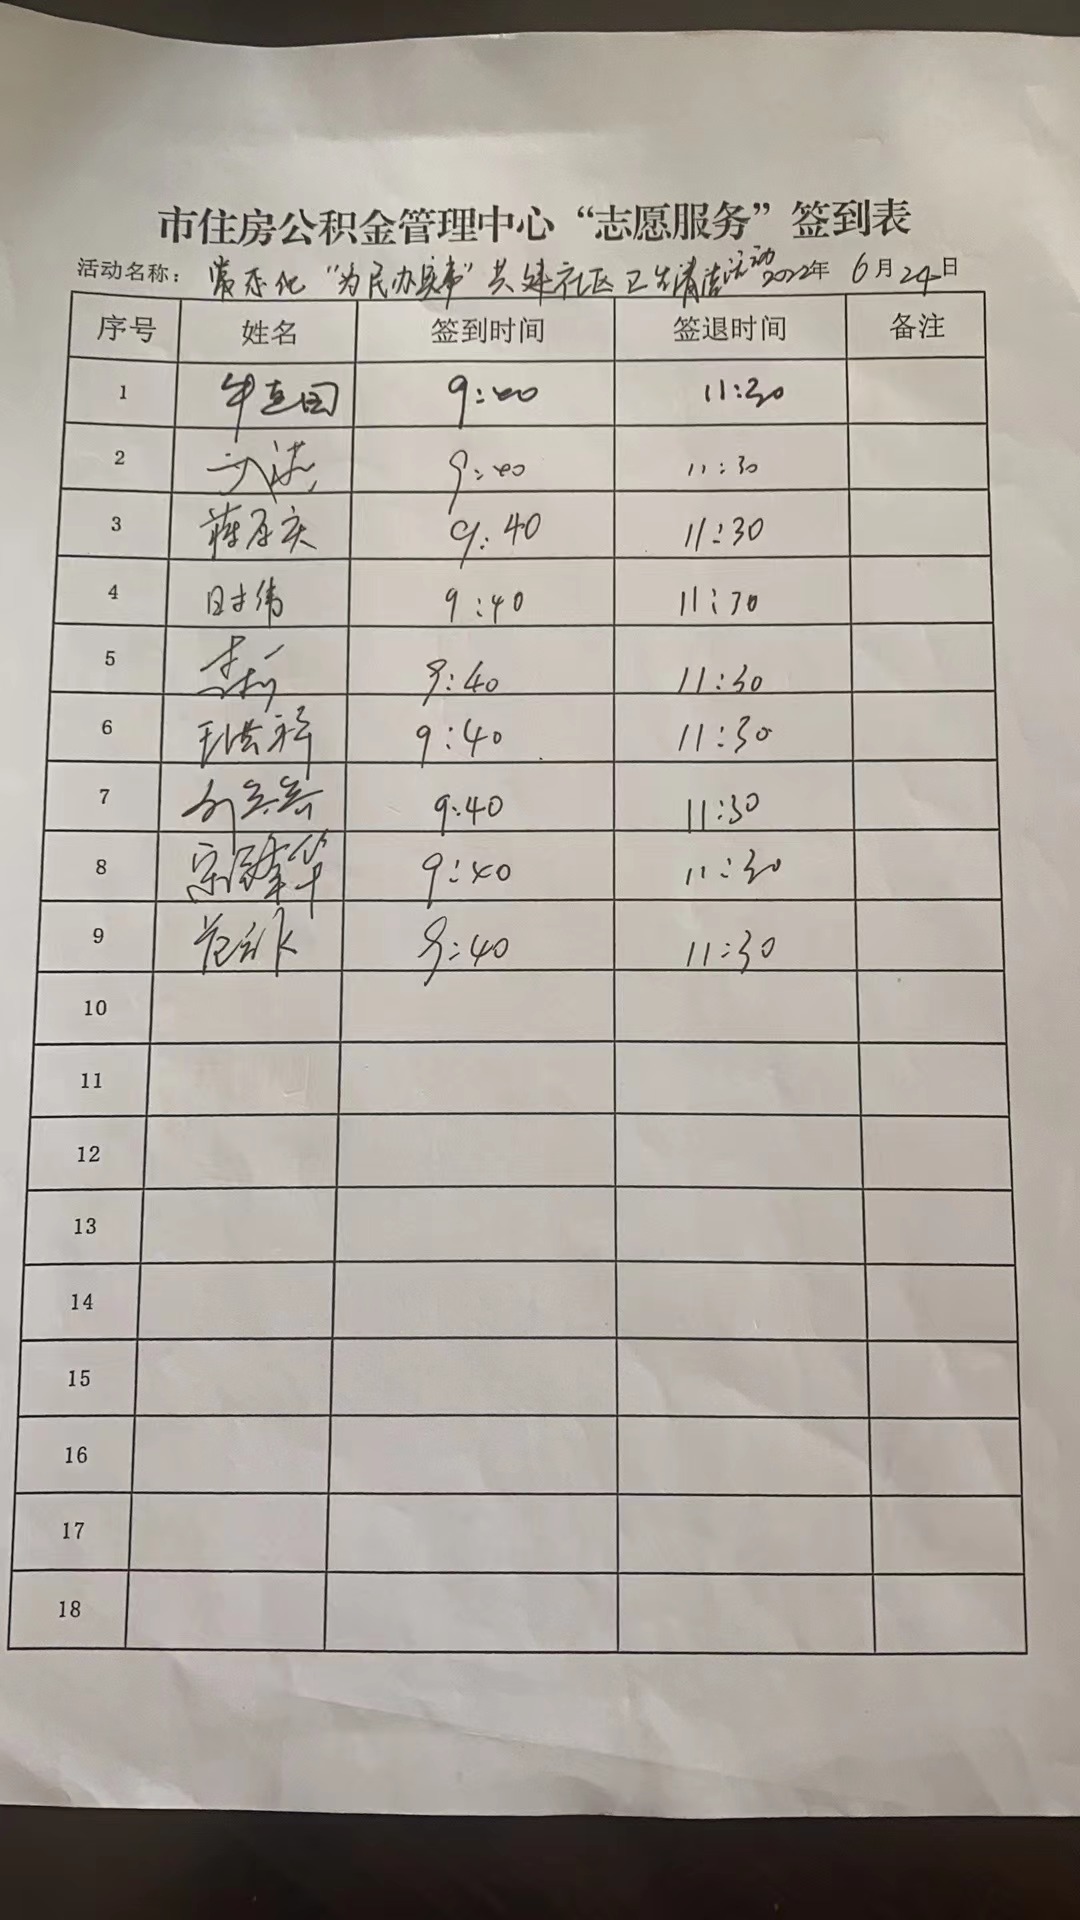 市住房公积金管理中心“志愿服务”签到表
活动名称：常态化“为民办实事”共建社区卫生清洁活动 2022年 6月24日
序号 姓名 签到时间 签退时间 备注
1 9:40 11:30
2 9:40 11:30
3 9:40 11:30
4 9:40 11:30
5 9:40 11:30
6 王洪祥 9:40 11:30
7 9:40 11:30
8 9:40 11:30
9 9:40 11:30
10
11
12
13
14
15
16
17
18